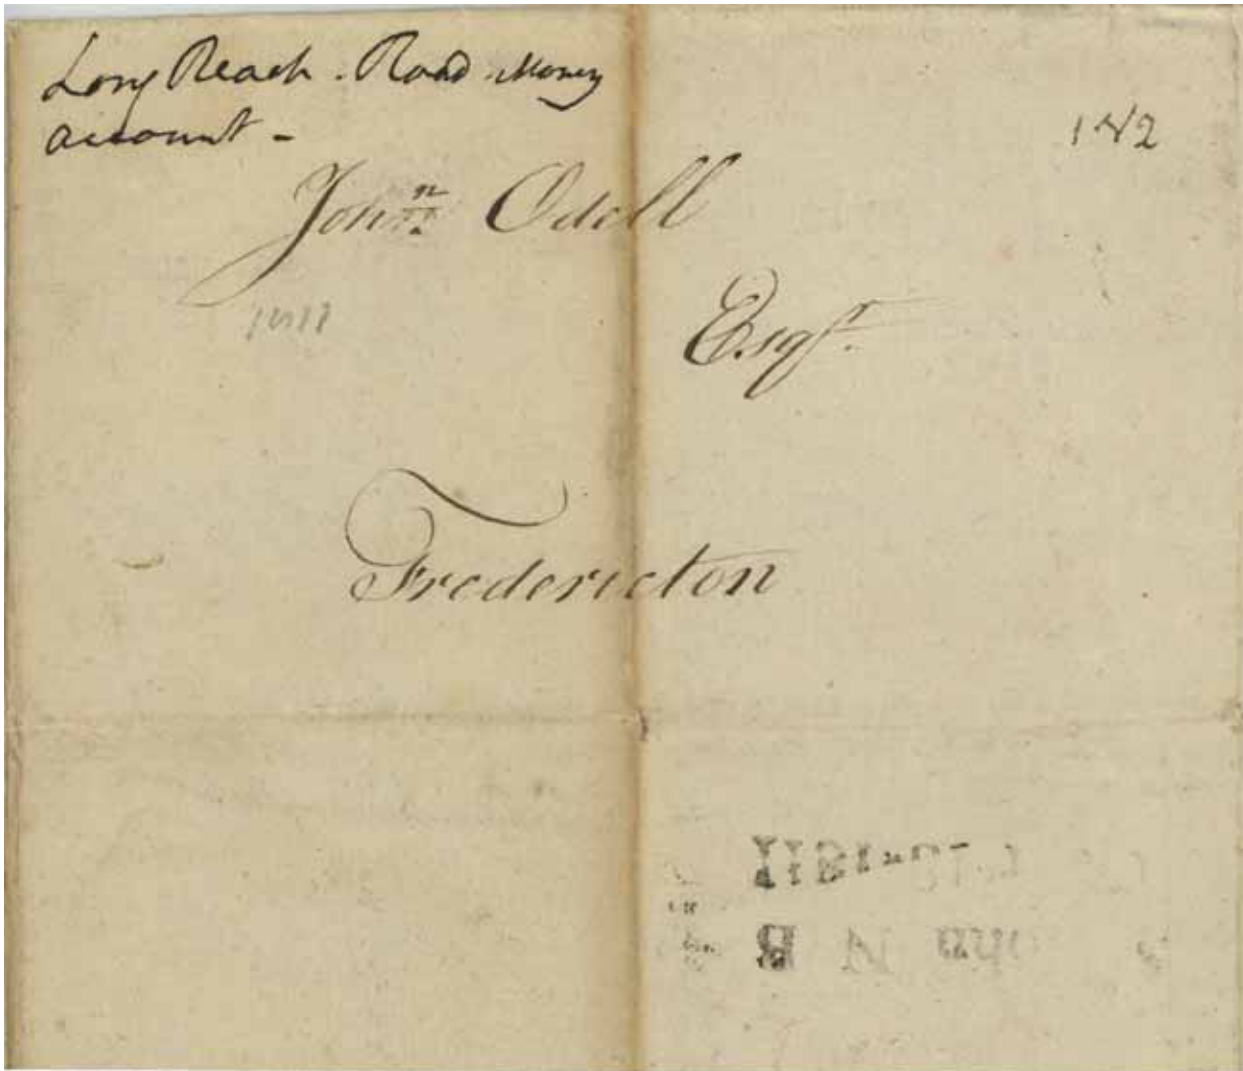 Long Reach. Road Money
account -
Jonn. Odell
Esqr.
Fredericton